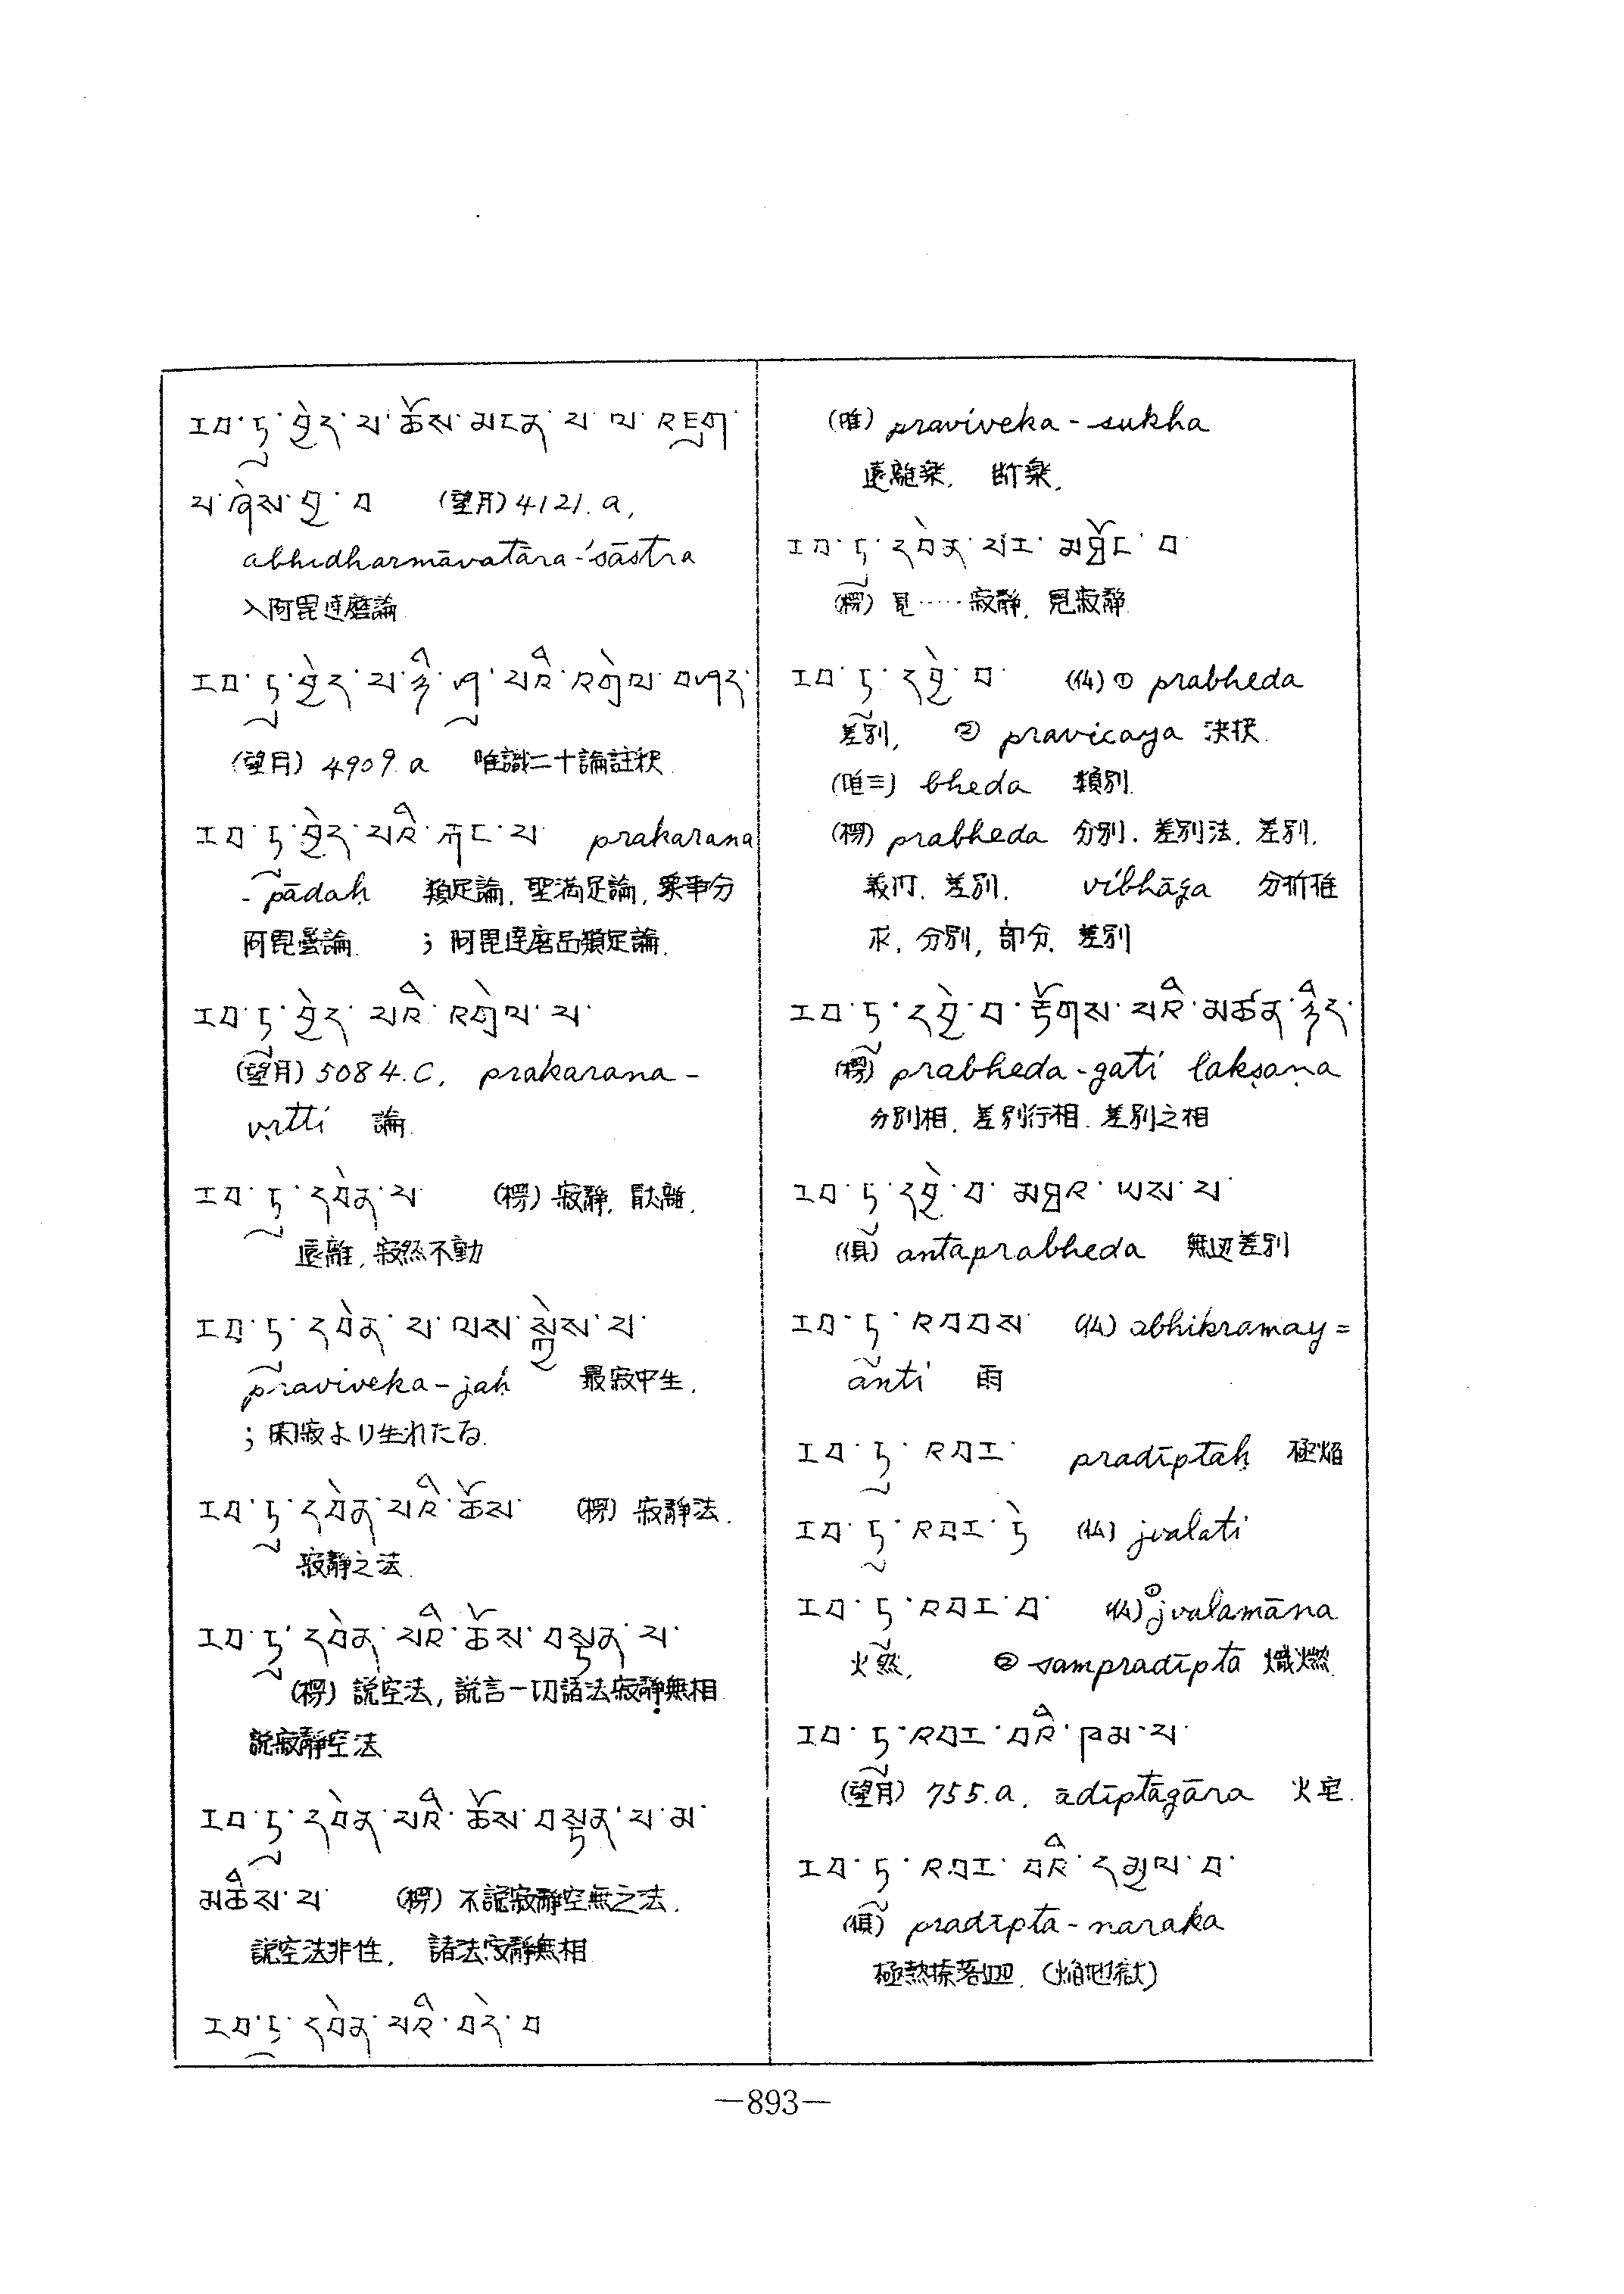 རབ་ཏུ་བྱེད་པ་ཆོས་མངན་པ་ལ་འཇུག་
པ་ཞེས་བྱ་བ (望月) 4121. a,
abhidharmāvatāra-śāstra
入阿毘達磨論
རབ་ཏུ་བྱེད་པ་ཉི་ཤུ་པའི་འགྲེལ་བཤད་
(望月) 4909. a 唯識二十論註釈
རབ་ཏུ་བྱེད་པའི་རྐང་པ prakarana
-pādaḥ 類足論, 聖満足論, 衆事分
阿毘曇論. ; 阿毘達磨品類足論.
རབ་ཏུ་བྱེད་པའི་འགྲེལ་པ་
(望月) 5084. C, prakarana-
vṛtti 論.
རབ་ཏུ་དབེན་པ (楞) 寂静,
遠離, 寂然不動
རབ་ཏུ་དབེན་པ་ལས་སྐྱེས་པ་
praviveka-jaḥ 最寂中生.
; 閑寂より生れたる.
རབ་ཏུ་དབེན་པའི་ཆོས (楞) 寂静法.
寂静之法.
རབ་ཏུ་དབེན་པའི་ཆོས་བསྟན་པ་
(楞) 説空法, 説言一切諸法寂静無相
説寂静空法
རབ་ཏུ་དབེན་པའི་ཆོས་བསྟན་པ་མ་
མཆིས་པ (楞) 不説寂静空無之法.
説空法非性. 諸法寂静無相
རབ་ཏུ་དབེན་པའི་བདེ་བ
(唯) praviveka-sukha
遠離楽, 断楽.
རབ་ཏུ་དབེན་པར་མཐོང་བ་
(楞) 見……寂静, 見寂静
རབ་ཏུ་དབྱེ་བ་ ① prabheda
差別, ② pravicaya 決択.
(唯三) bheda 類別.
(楞) prabheda 分別. 差別法. 差別.
義門. 差別. vibhāga 分析推
求. 分別, 部分. 差別
རབ་ཏུ་དབྱེ་བ་རྟོགས་པའི་མཚན་ཉིད་
(楞) prabheda-gati lakṣaṇa
分別相. 差別行相. 差別之相
རབ་ཏུ་དབྱེ་བ་མཐའ་ཡས་པ་
(倶) antaprabheda 無辺差別
རབ་ཏུ་འབབས abhikramay=
ānti 雨
རབ་ཏུ་འབར་ pradīptaḥ 極焔
རབ་ཏུ་འབར་ཏེ jvalati
རབ་ཏུ་འབར་བ་ ① jvalamāna
火然, ② sampradīpta 熾燃.
རབ་ཏུ་འབར་བའི་ཁམ་པ་
(望月) 755. a. ādīptāgāra 火宅.
རབ་ཏུ་འབར་བའི་དམྱལ་བ་
(倶) pradīpta-naraka
極熱捺落迦. (焔地獄)
—893—